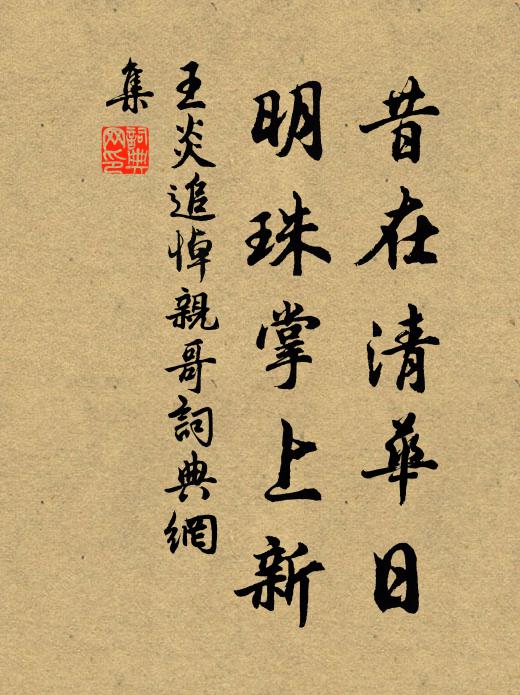 昔在清華日
明珠掌上新
王炎追悼親哥詞典網
集
詞典網印